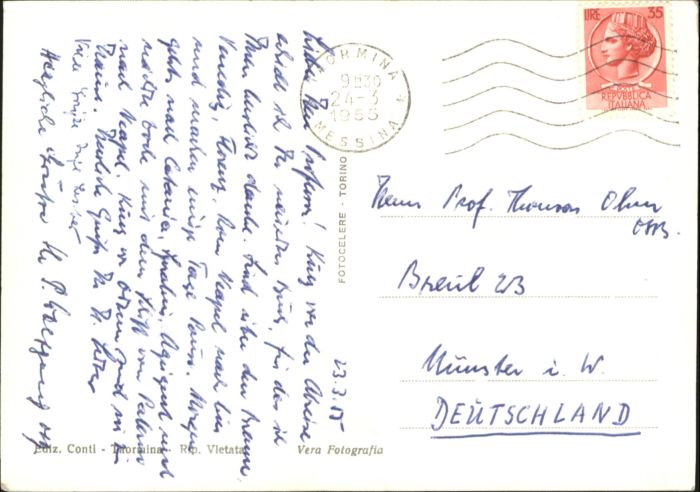 Lieber Herr Professor! Kurz vor der Abreise
erhielt ich Ihr Brief, für den ich
Ihnen herzlich danke. Sind über den Brenner,
Venedig, Florenz, Rom, Neapel nach hier
und machen einige Tage Pause. Morgen
geht's nach Catania, Agrigent und
nächste Woche mit dem Schiff von Palermo
nach Neapel. Kurz vor Ostern sind wir in
Herzliche Grüße Ihr
Viele Grüße Ihre
Herzliche Grüße Ihr P. Wolfgang OSB
23.3.55
TAORMINA
MESSINA
9 1030
24-3
1955
LIRE 35
REPUBBLICA
ITALIANA
Herrn Prof. Thomas Ohm
OSB.
Breul 23
Münster i. W.
DEUTSCHLAND
FOTOCELERE - TORINO
Ediz. Conti - Taormina - Rip. Vietata
Vera Fotografia